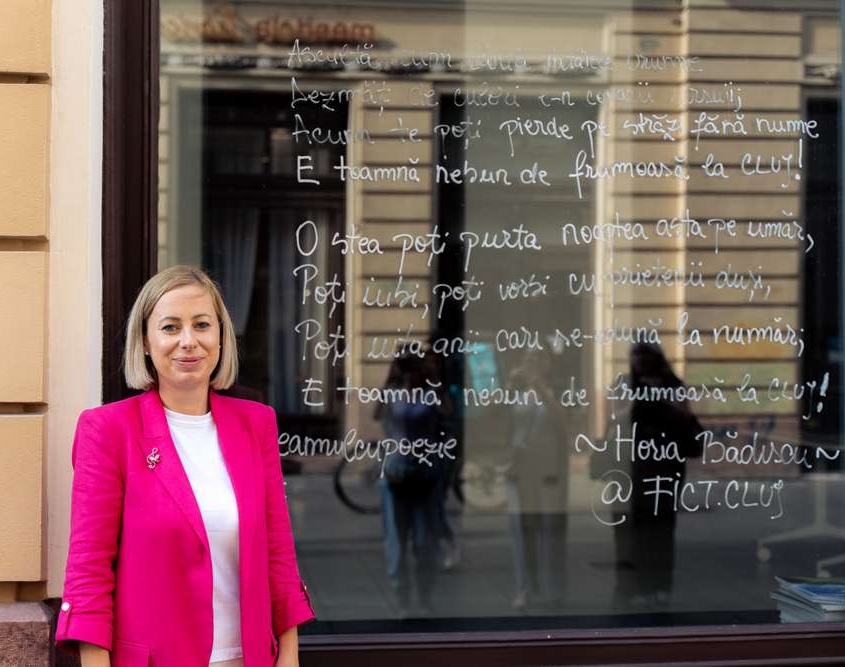 Ascultă, cum
Dezmăț de culori
Acum te poți pierde pe străzi fără nume
E toamnă nebun de frumoasă la CLUJ!
O stea poți purta noaptea asta pe umăr,
Poți iubi, poți vorbi cu prietenii duși,
Poți uita anii care se-adună la număr;
E toamnă nebun de frumoasă la CLUJ!
eamulcupoezie
~Horia Bădescu~
@FiCT.CLUJ